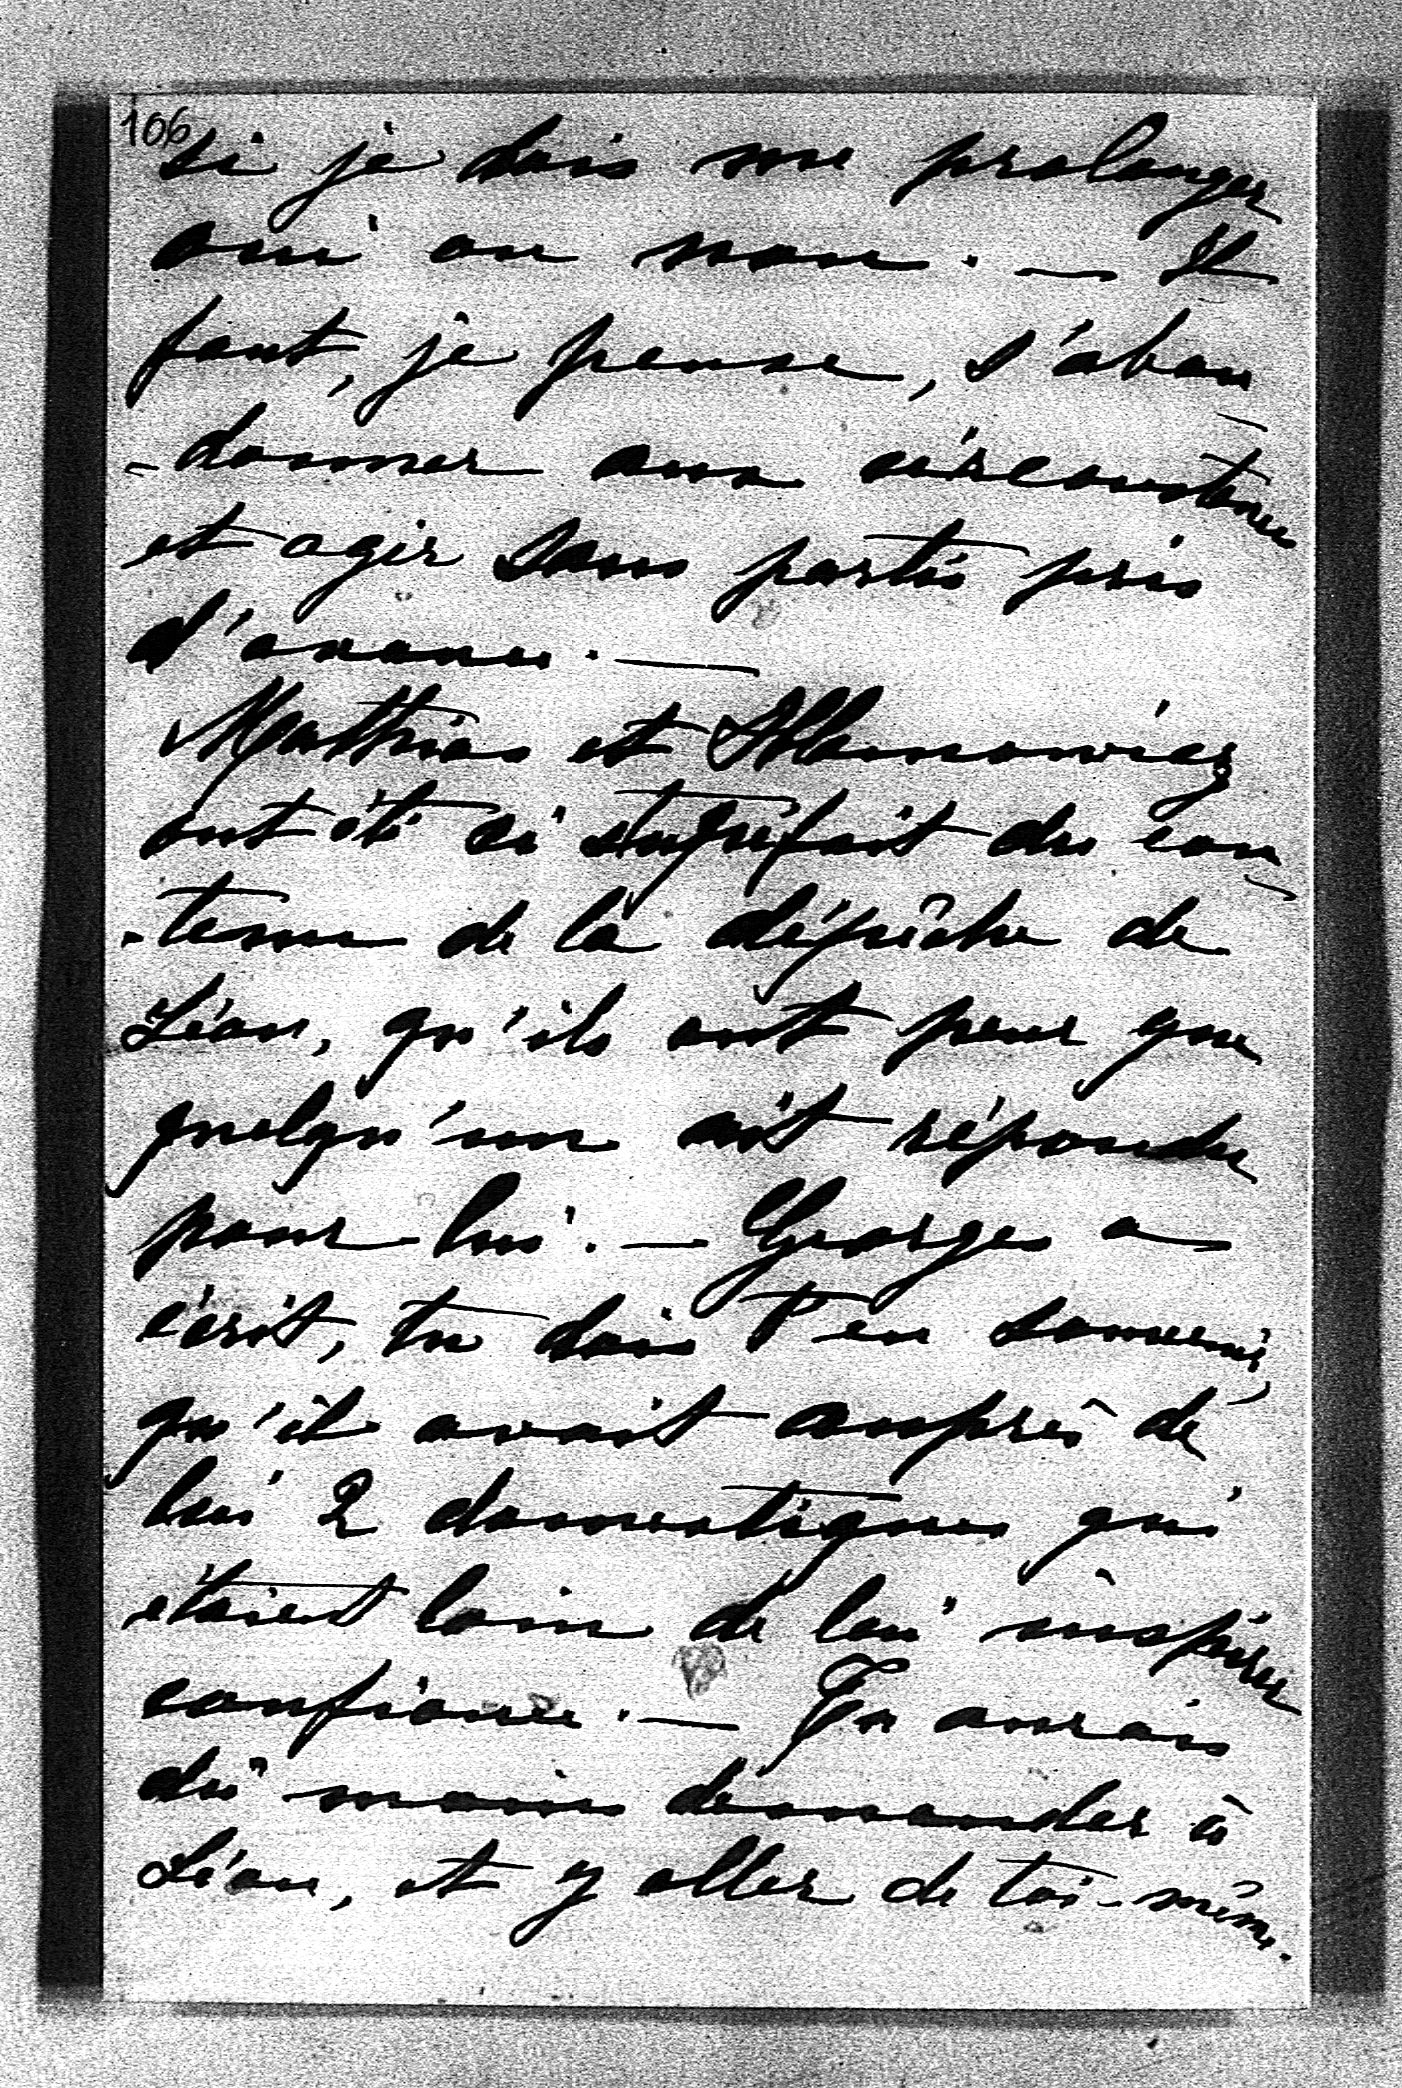 106
si je dois me prolonger
oui ou non. — Il
faut, je pense, s'aban
-donner aux circonstances
et agir sans partis pris
d'avance. —
Matthias et
ont été si stupéfait du con
-tenu de la dépêche de
Léon, qu'ils ont peur que
quelqu'un ait répondu
pour lui. — Georges a
écrit, tu dois t'en souvenir,
qu'il avait auprès de
lui 2 domestiques qui
étaient loin de lui inspirer
confiance. — Tu aurais
dû moins demander à
Léon, et y aller de toi-même.